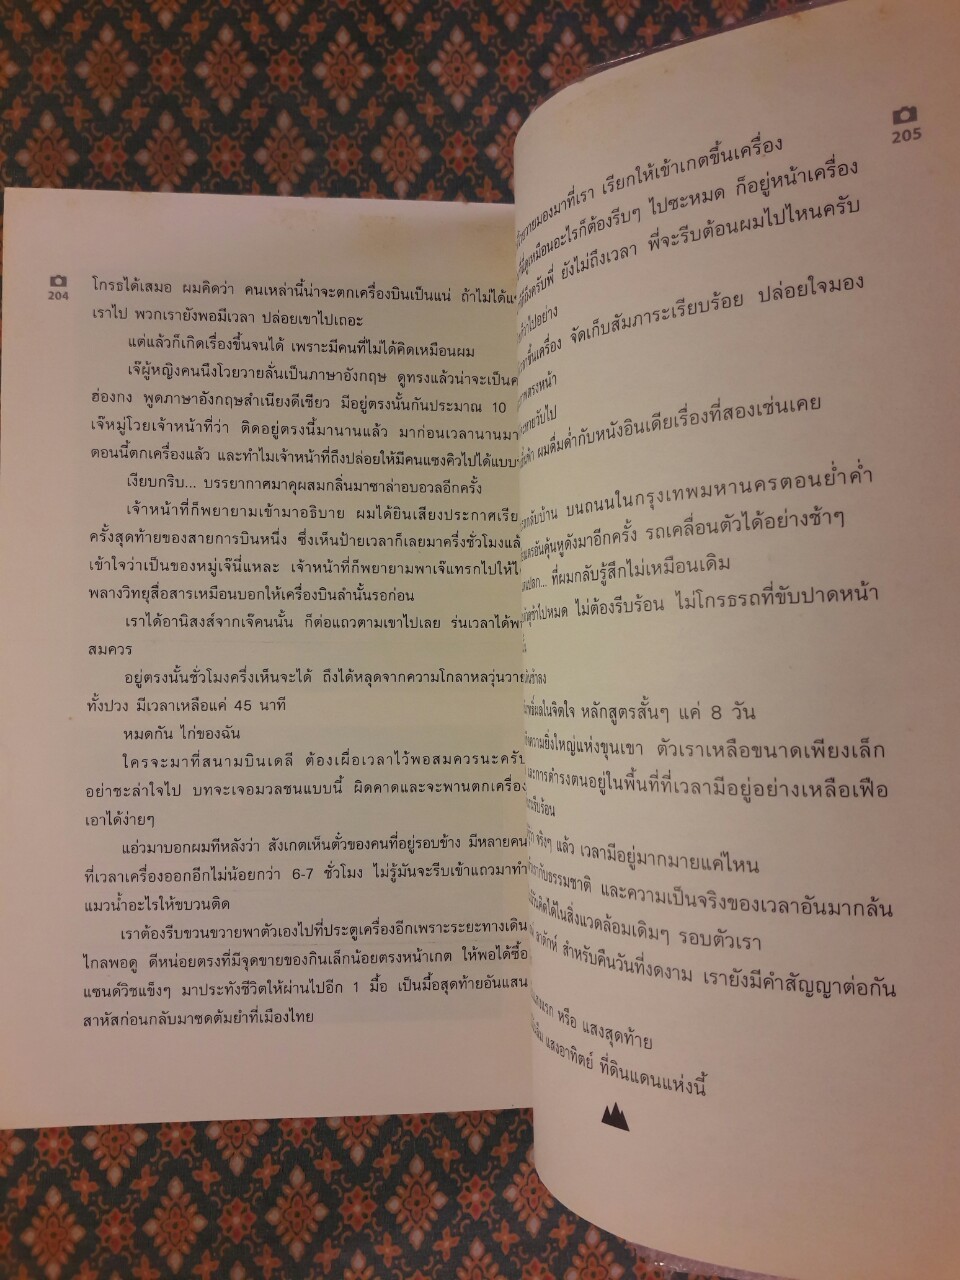 204
โกรธได้เสมอ ผมคิดว่า คนเหล่านี้น่าจะตกเครื่องบินเป็นแน่ ถ้าไม่ได้
เราไป พวกเรายังพอมีเวลา ปล่อยเขาไปเถอะ
แต่แล้วก็เกิดเรื่องขึ้นจนได้ เพราะมีคนที่ไม่ได้คิดเหมือนผม
เจ๊ผู้หญิงคนนึงโวยวายลั่นเป็นภาษาอังกฤษ ดูทรงแล้วน่าจะเป็น
ฮ่องกง พูดภาษาอังกฤษสำเนียงดีเชียว มีอยู่ตรงนั้นกันประมาณ 10
เจ๊หมู่โวยเจ้าหน้าที่ว่า ติดอยู่ตรงนี้มานานแล้ว มาก่อนเวลานานมา
ตอนนี้ตกเครื่องแล้ว และทำไมเจ้าหน้าที่ถึงปล่อยให้มีคนแซงคิวไปได้
เงียบกริบ... บรรยากาศมาคุผสมกลิ่นมาซาล่าอบอวลอีกครั้ง
เจ้าหน้าที่ก็พยายามเข้ามาอธิบาย ผมได้ยินเสียงประกาศ
ครั้งสุดท้ายของสายการบินหนึ่ง ซึ่งเห็นป้ายเวลาก็เลยมาครึ่งชั่วโมง
เข้าใจว่าเป็นของหมู่เจ๊นี่แหละ เจ้าหน้าที่ก็พยายามพาเจ๊แทรกไปให้
พลางวิทยุสื่อสารเหมือนบอกให้เครื่องบินลำนั้นรอก่อน
เราได้อานิสงส์จากเจ๊คนนั้น ก็ต่อแถวตามเขาไปเลย ร่นเวลาได้
สมควร
อยู่ตรงนั้นชั่วโมงครึ่งเห็นจะได้ ถึงได้หลุดจากความโกลาหลวุ่นวาย
ทั้งปวง มีเวลาเหลือแค่ 45 นาที
หมดกัน ไก่ของฉัน
ใครจะมาที่สนามบินเดลี ต้องเผื่อเวลาไว้พอสมควรนะครับ
อย่าชะล่าใจไป บทจะเจอมวลชนแบบนี้ ผิดคาดและจะพานตกเครื่อง
เอาได้ง่ายๆ
แอ่วมาบอกผมทีหลังว่า สังเกตเห็นตั๋วของคนที่อยู่รอบข้าง มีหลายคน
ที่เวลาเครื่องออกอีกไม่น้อยกว่า 6-7 ชั่วโมง ไม่รู้มันจะรีบเข้าแถวมาทำ
แมวน้ำอะไรให้ขบวนติด
เราต้องรีบขวนขวายพาตัวเองไปที่ประตูเครื่องอีกเพราะระยะทางเดิน
ไกลพอดู ดีหน่อยตรงที่มีจุดขายของกินเล็กน้อยตรงหน้าเกต ให้พอได้ซื้อ
แซนด์วิชแข็งๆ มาประทังชีวิตให้ผ่านไปอีก 1 มื้อ เป็นมื้อสุดท้ายอันแสน
สาหัสก่อนกลับมาซดต้มยำที่เมืองไทย
205
มองมาที่เรา เรียกให้เข้าเกตขึ้นเครื่อง
ดูเหมือนอะไรก็ต้องรีบๆ ไปซะหมด ก็อยู่หน้าเครื่อง
ยังไม่ถึงเวลา พี่จะรีบต้อนผมไปไหนครับ
ไปอย่าง
ขึ้นเครื่อง จัดเก็บสัมภาระเรียบร้อย ปล่อยใจมอง
ตรงหน้า
ไป
ผมดื่มด่ำกับหนังอินเดียเรื่องที่สองเช่นเคย
บ้าน บนถนนในกรุงเทพมหานครตอนย่ำค่ำ
อันคุ้นหูดังมาอีกครั้ง รถเคลื่อนตัวได้อย่างช้าๆ
ที่ผมกลับรู้สึกไม่เหมือนเดิม
ช้าไปหมด ไม่ต้องรีบร้อน ไม่โกรธรถที่ขับปาดหน้า
ช้าลง
ในจิตใจ หลักสูตรสั้นๆ แค่ 8 วัน
ความยิ่งใหญ่แห่งขุนเขา ตัวเราเหลือขนาดเพียงเล็ก
และการดำรงตนอยู่ในพื้นที่ที่เวลามีอยู่อย่างเหลือเฟือ
รีบร้อน
จริงๆ แล้ว เวลามีอยู่มากมายแค่ไหน
กับธรรมชาติ และความเป็นจริงของเวลาอันมากล้น
คิดได้ในสิ่งแวดล้อมเดิมๆ รอบตัวเรา
ลาดักห์ สำหรับคืนวันที่งดงาม เรายังมีคำสัญญาต่อกัน
หรือ แสงสุดท้าย
แสงอาทิตย์ ที่ดินแดนแห่งนี้